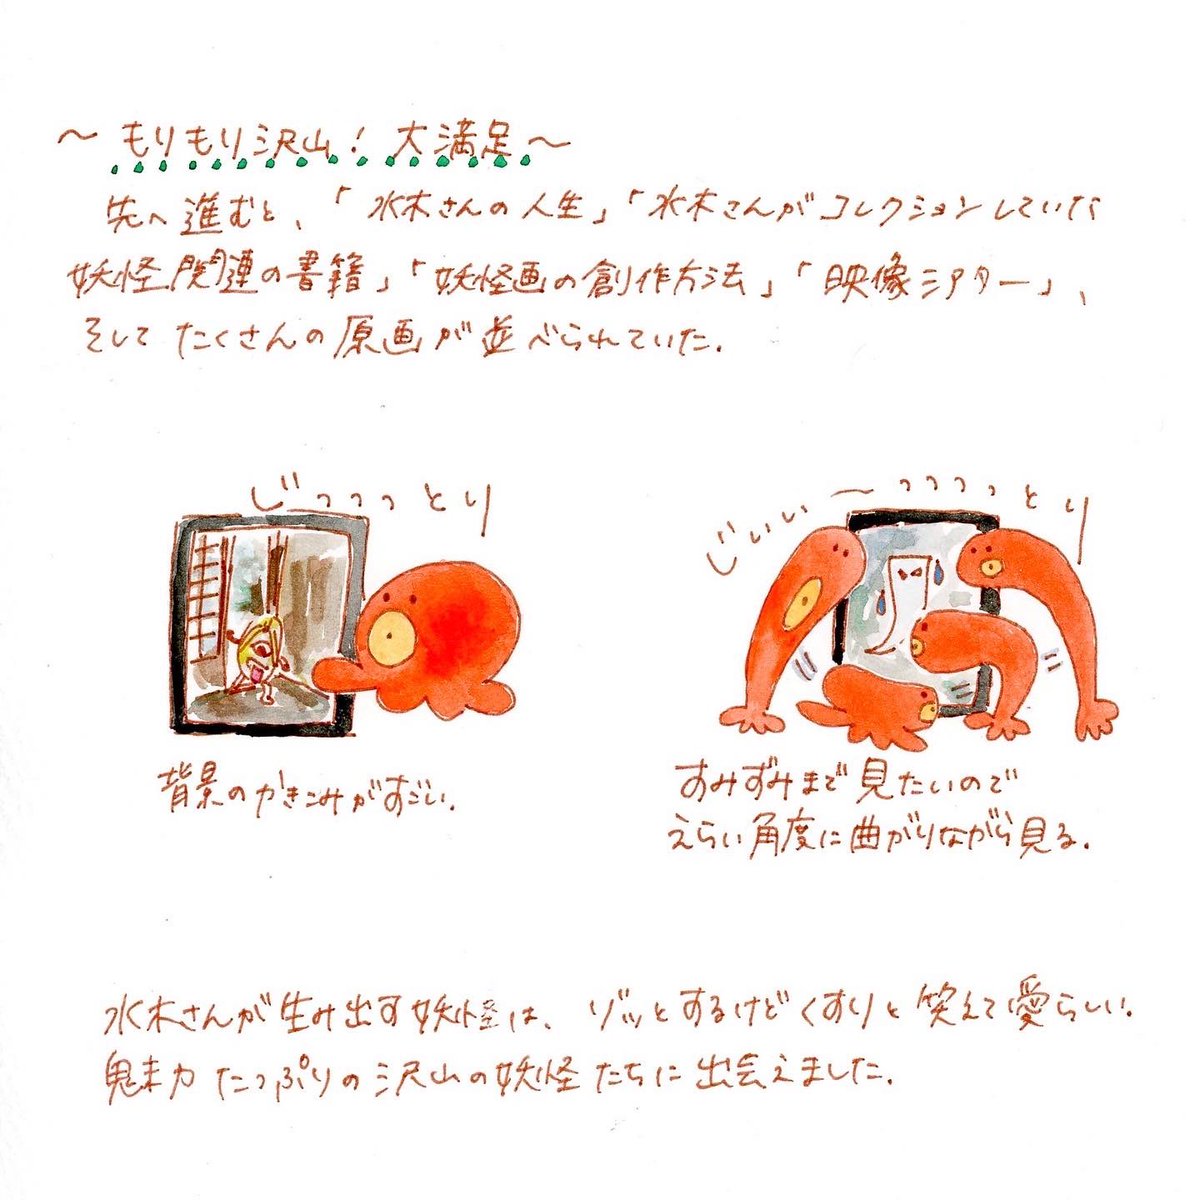 〜もりもり沢山！大満足〜
先へ進むと、「水木さんの人生」「水木さんがコレクションしていた
妖怪関連の書籍」「妖怪画の創作方法」「映像シアター」、
そしてたくさんの原画が並べられていた.
じっっっとり
背景のかきこみがすごい.
じいぃぃ〜っっっっとり
すみずみまで見たいので
えらい角度に曲がりながら見る.
水木さんが生み出す妖怪は、ゾッとするけどくすりと笑えて愛らしい.
魅力たっぷりの沢山の妖怪たちに出会えました.